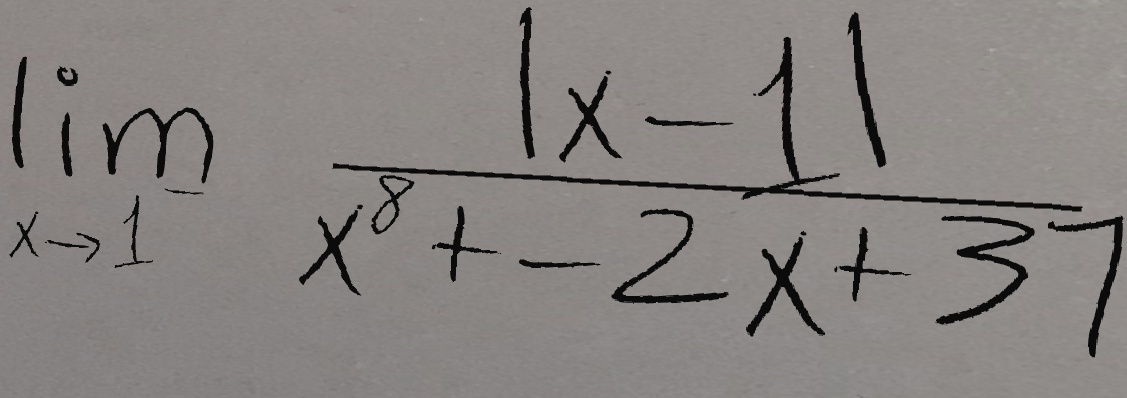 lim x→1⁻ |x-1| / x⁸+-2x+37